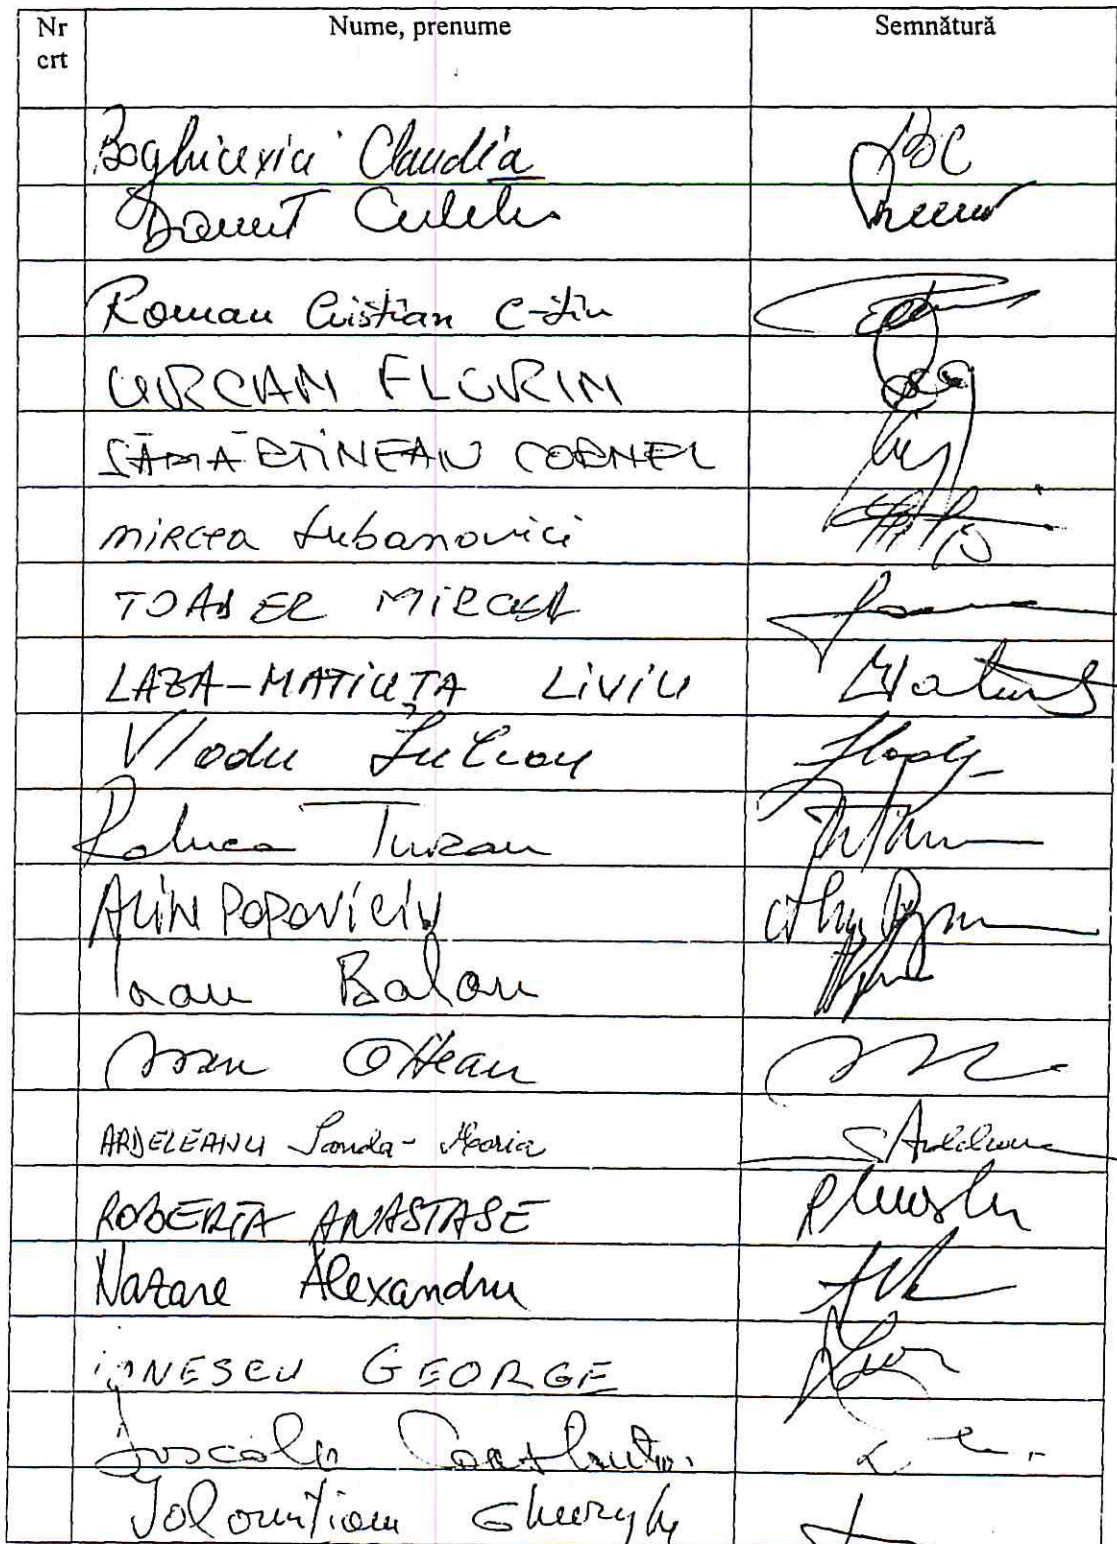 Nr crt Nume, prenume Semnătură
Boghicevici Claudia BC
Danuț Culetu
Roman Cristian C-tin
URCAN FLORIN
SĂMĂRTINEAN CORNEL
MIRCEA Lubanovici
TOADER MIRCEA
LAZA-MATIUȚA LIVIU
Vlodu Iulian
Raluca Turcan
ALIN POPOVICIU
Ioan Balan
Ioan Oltean
ARDELEANU Sanda-Maria
ROBERTA ANASTASE
Nazare Alexandru
IONESCU GEORGE
Dascalu Constantin
Ialomițianu Gheorghe